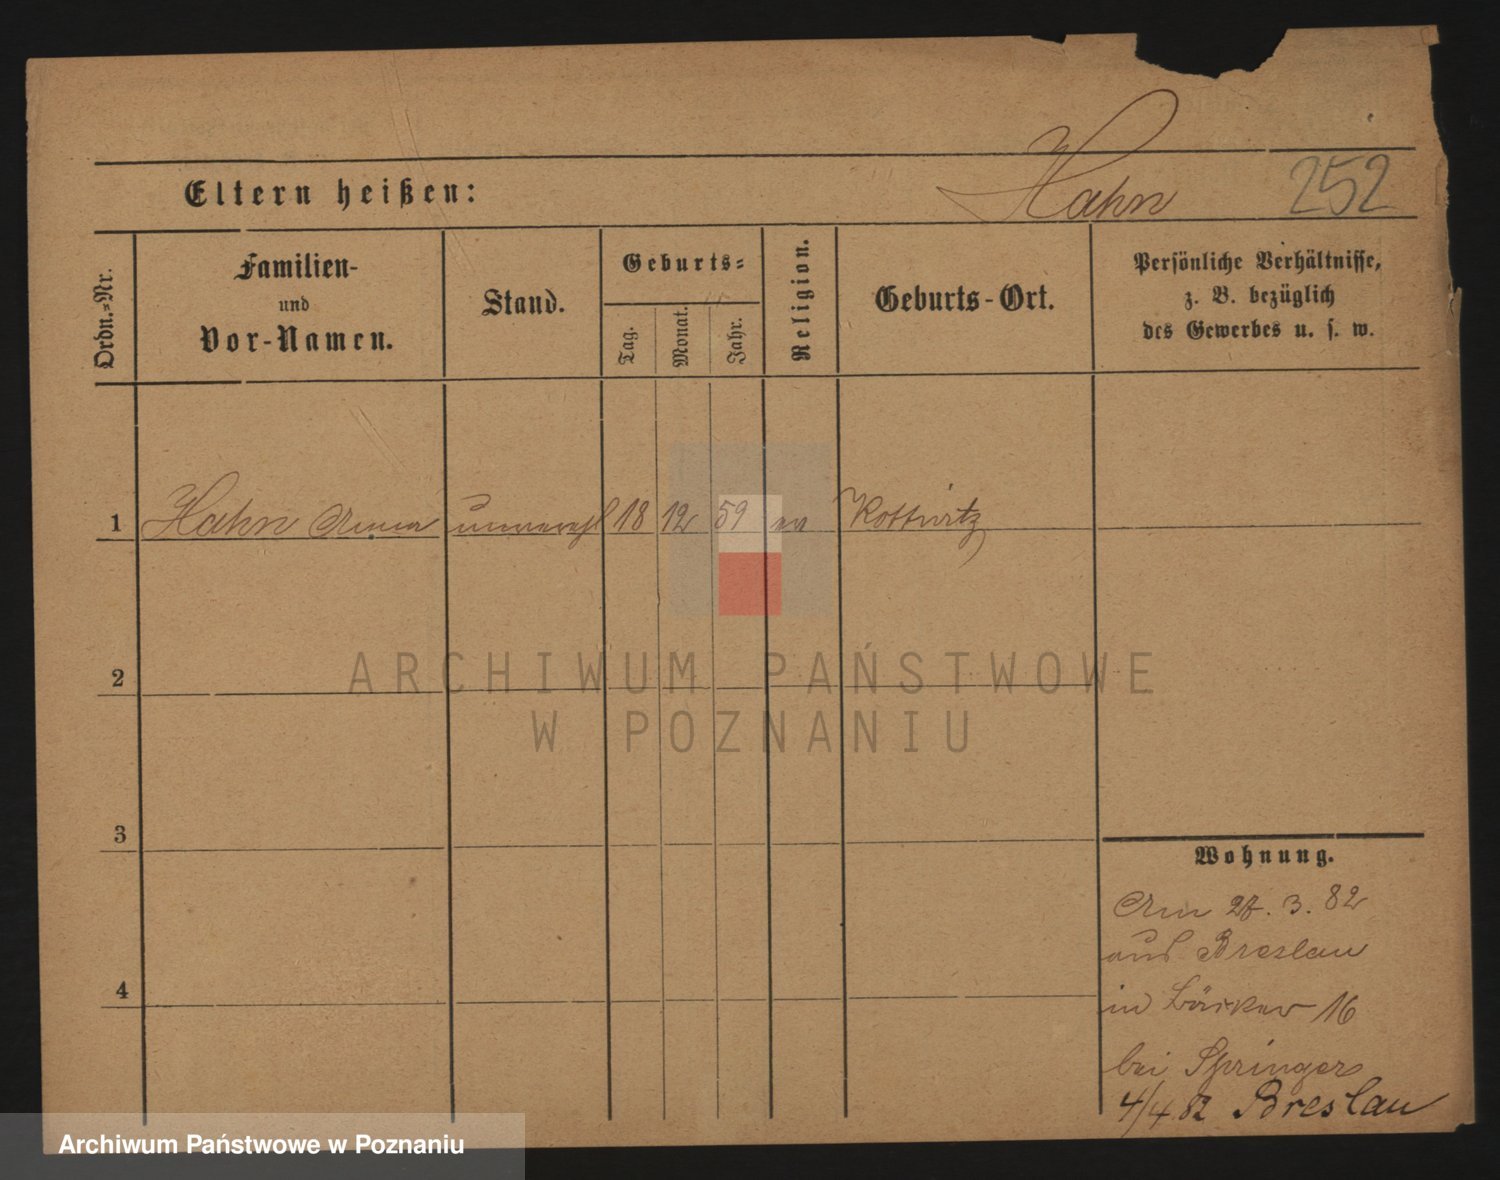 Hahn 252
Eltern heißen:
Ordn.-Nr.
Familien-
und
Vor-Namen.
Stand.
Geburts-
Tag.
Monat.
Jahr.
Religion.
Geburts-Ort.
Persönliche Verhältnisse,
z. B. bezüglich
des Gewerbes u. s. w.
1 Hahn Anna unverehl 18 12 59 ev Kottwitz
2
3
4
Wohnung.
Am 27. 3. 82
aus Breslau
in 16
bei Springer
4/4 82 Breslau
ARCHIWUM PAŃSTWOWE
W POZNANIU
Archiwum Państwowe w Poznaniu